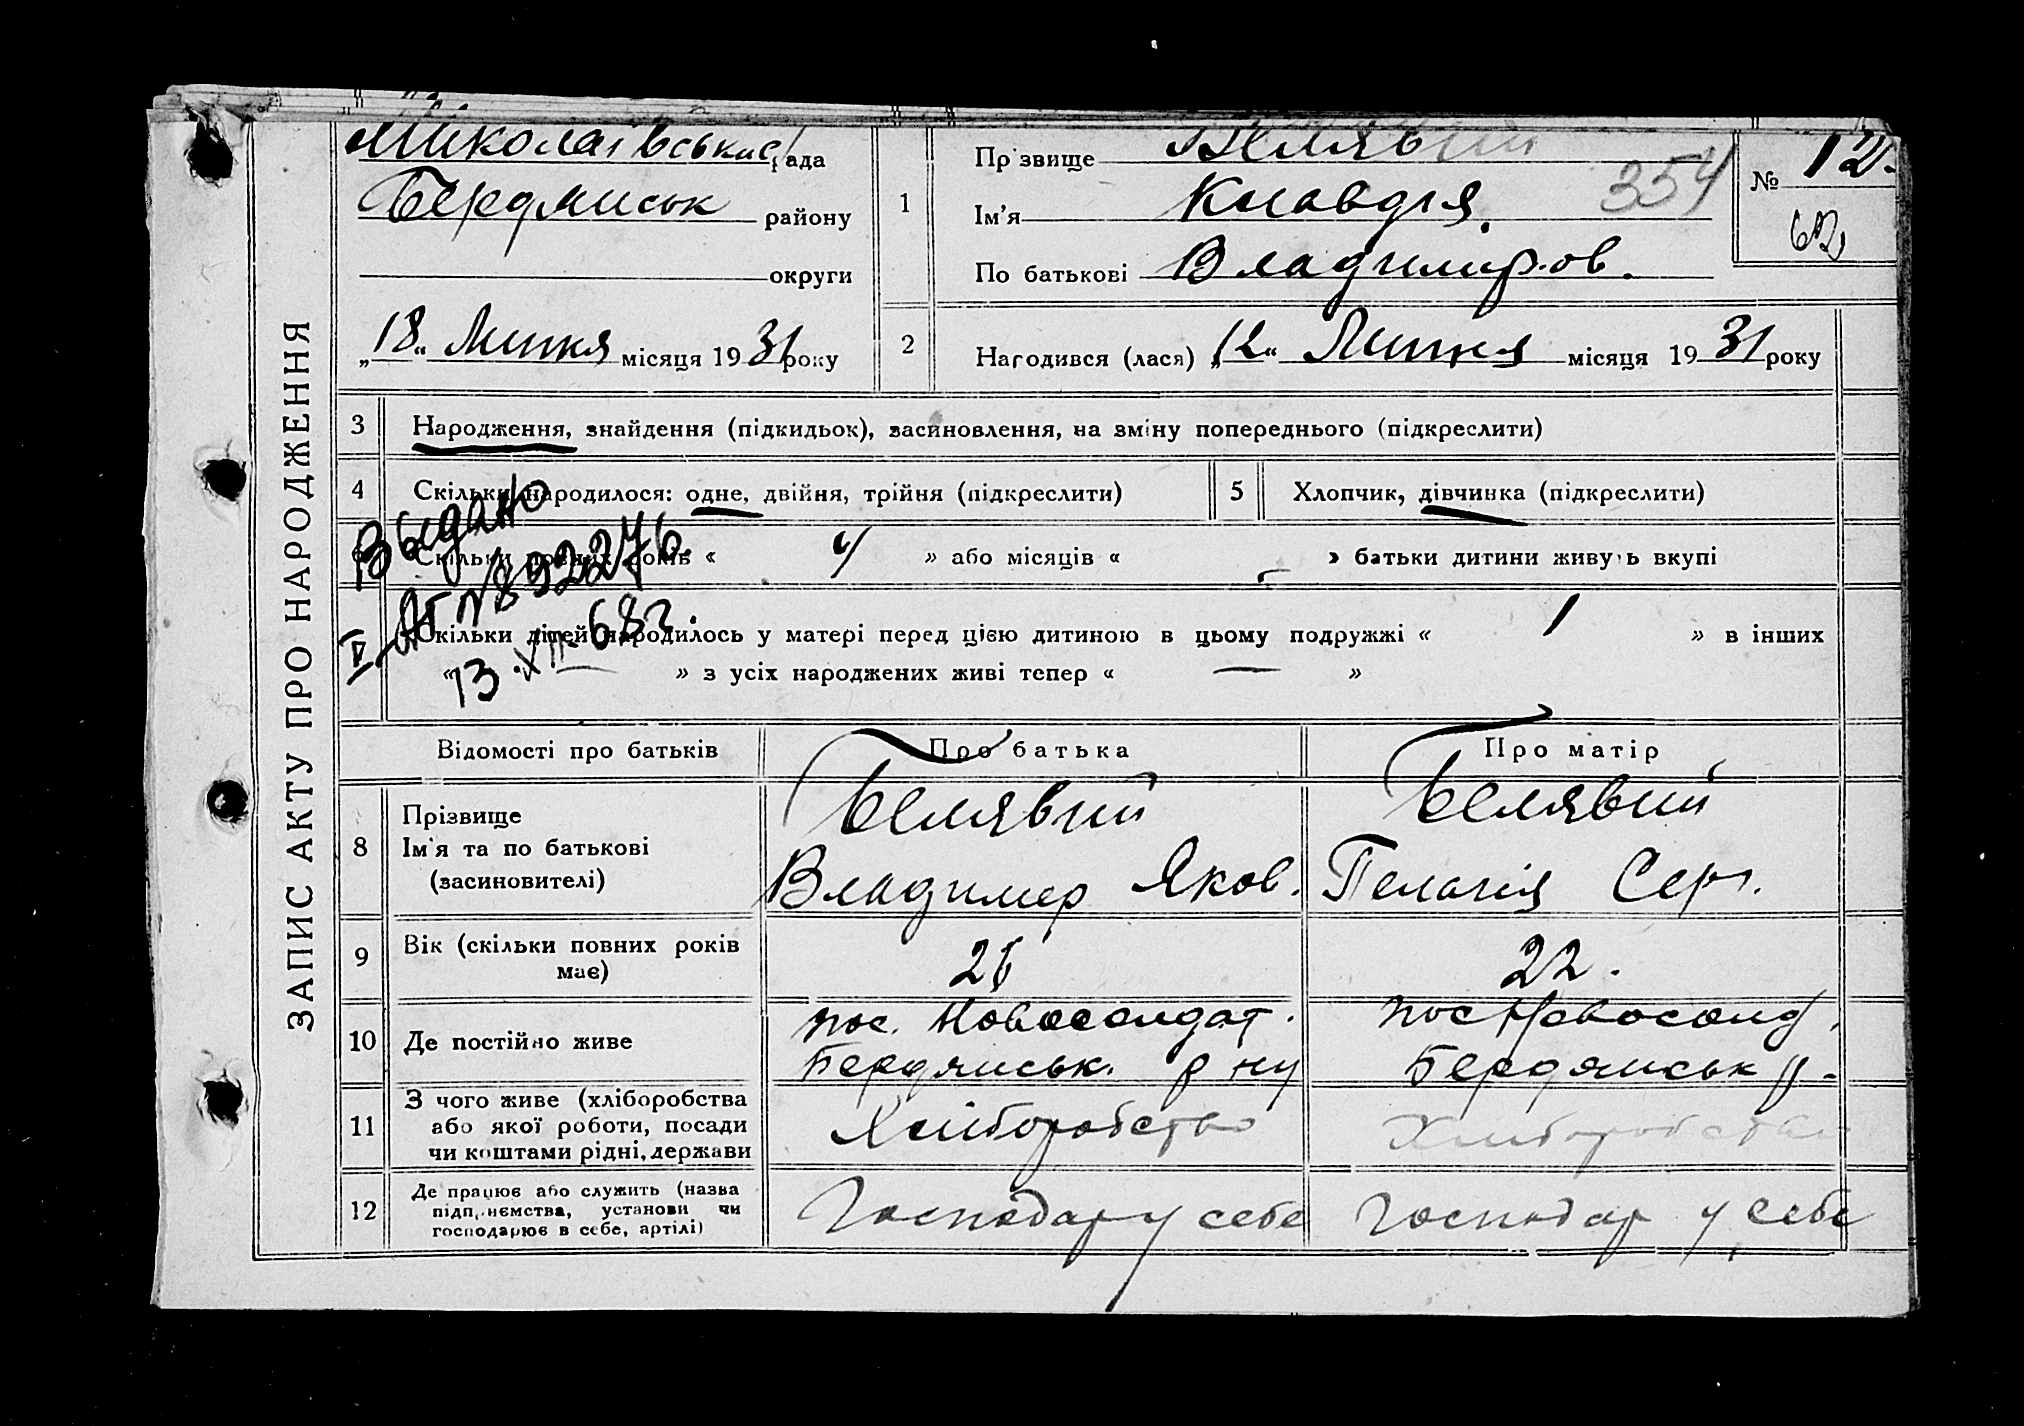 ЗАПИС АКТУ ПРО НАРОДЖЕННЯ
Миколаївська рада
Бердянськ району
округи
„18“ Липня місяця 1931 року
1
Прізвище Белявий
Ім’я Клавдія
По батькові Владимиров.
354
№ 12.
62
2
Народився (лася) „12“ Липня місяця 1931 року
3 Народження, знайдення (підкидьок), засиновлення, на зміну попереднього (підкреслити)
4 Скільки народилося: одне, двійня, трійня (підкреслити)
5 Хлопчик, дівчинка (підкреслити)
Скільки повних років « 4 » або місяців « » батьки дитини живуть вкупі
Скільки дітей народилось у матері перед цією дитиною в цьому подружжі « 1 » в інших
« — » з усіх народжених живі тепер « — »
Выдано
V-АП №892276.
13.XII-68г.
Відомості про батьків Про батька Про матір
8 Прізвище
Ім’я та по батькові
(засиновителі)
Белявий
Владимер Яков.
Белявий
Пелагія Серг.
9 Вік (скільки повних років
має)
22.
10 Де постійно живе
пос. Новосолдат.
Бердянськ. р ну
пос Новосолд.
Бердянськ р.
11 З чого живе (хліборобства
або якої роботи, посади
чи коштами рідні, держави
Хліборобство
Хліборобство
12 Де працює або служить (назва
підприємства, установи чи
господарює в себе, артілі)
Господар у себе
Господар у себе